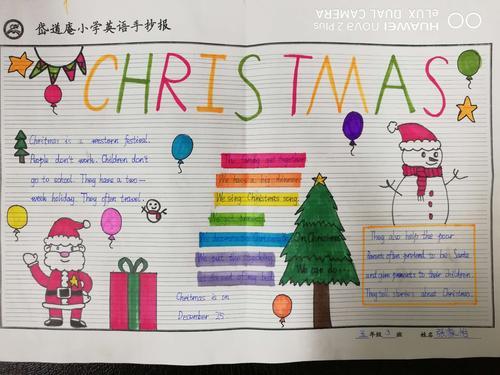 岱道庵小学英语手抄报
CHRISTMAS
Christmas is a western festival.
People don't work. Children don't
go to school. They have a two-
week holiday. They often travel.
The family get together
We have a big dinner.
We sing Christmas song.
On Christmas
We can do...
Christmas is on
December 25.
They also help the poor
Parents often pretend to be Santa
and give presents to their children.
They tell stories about Christmas.
五年级3班 姓名
HUAWEI nova 2 Plus
eLUX DUAL CAMERA